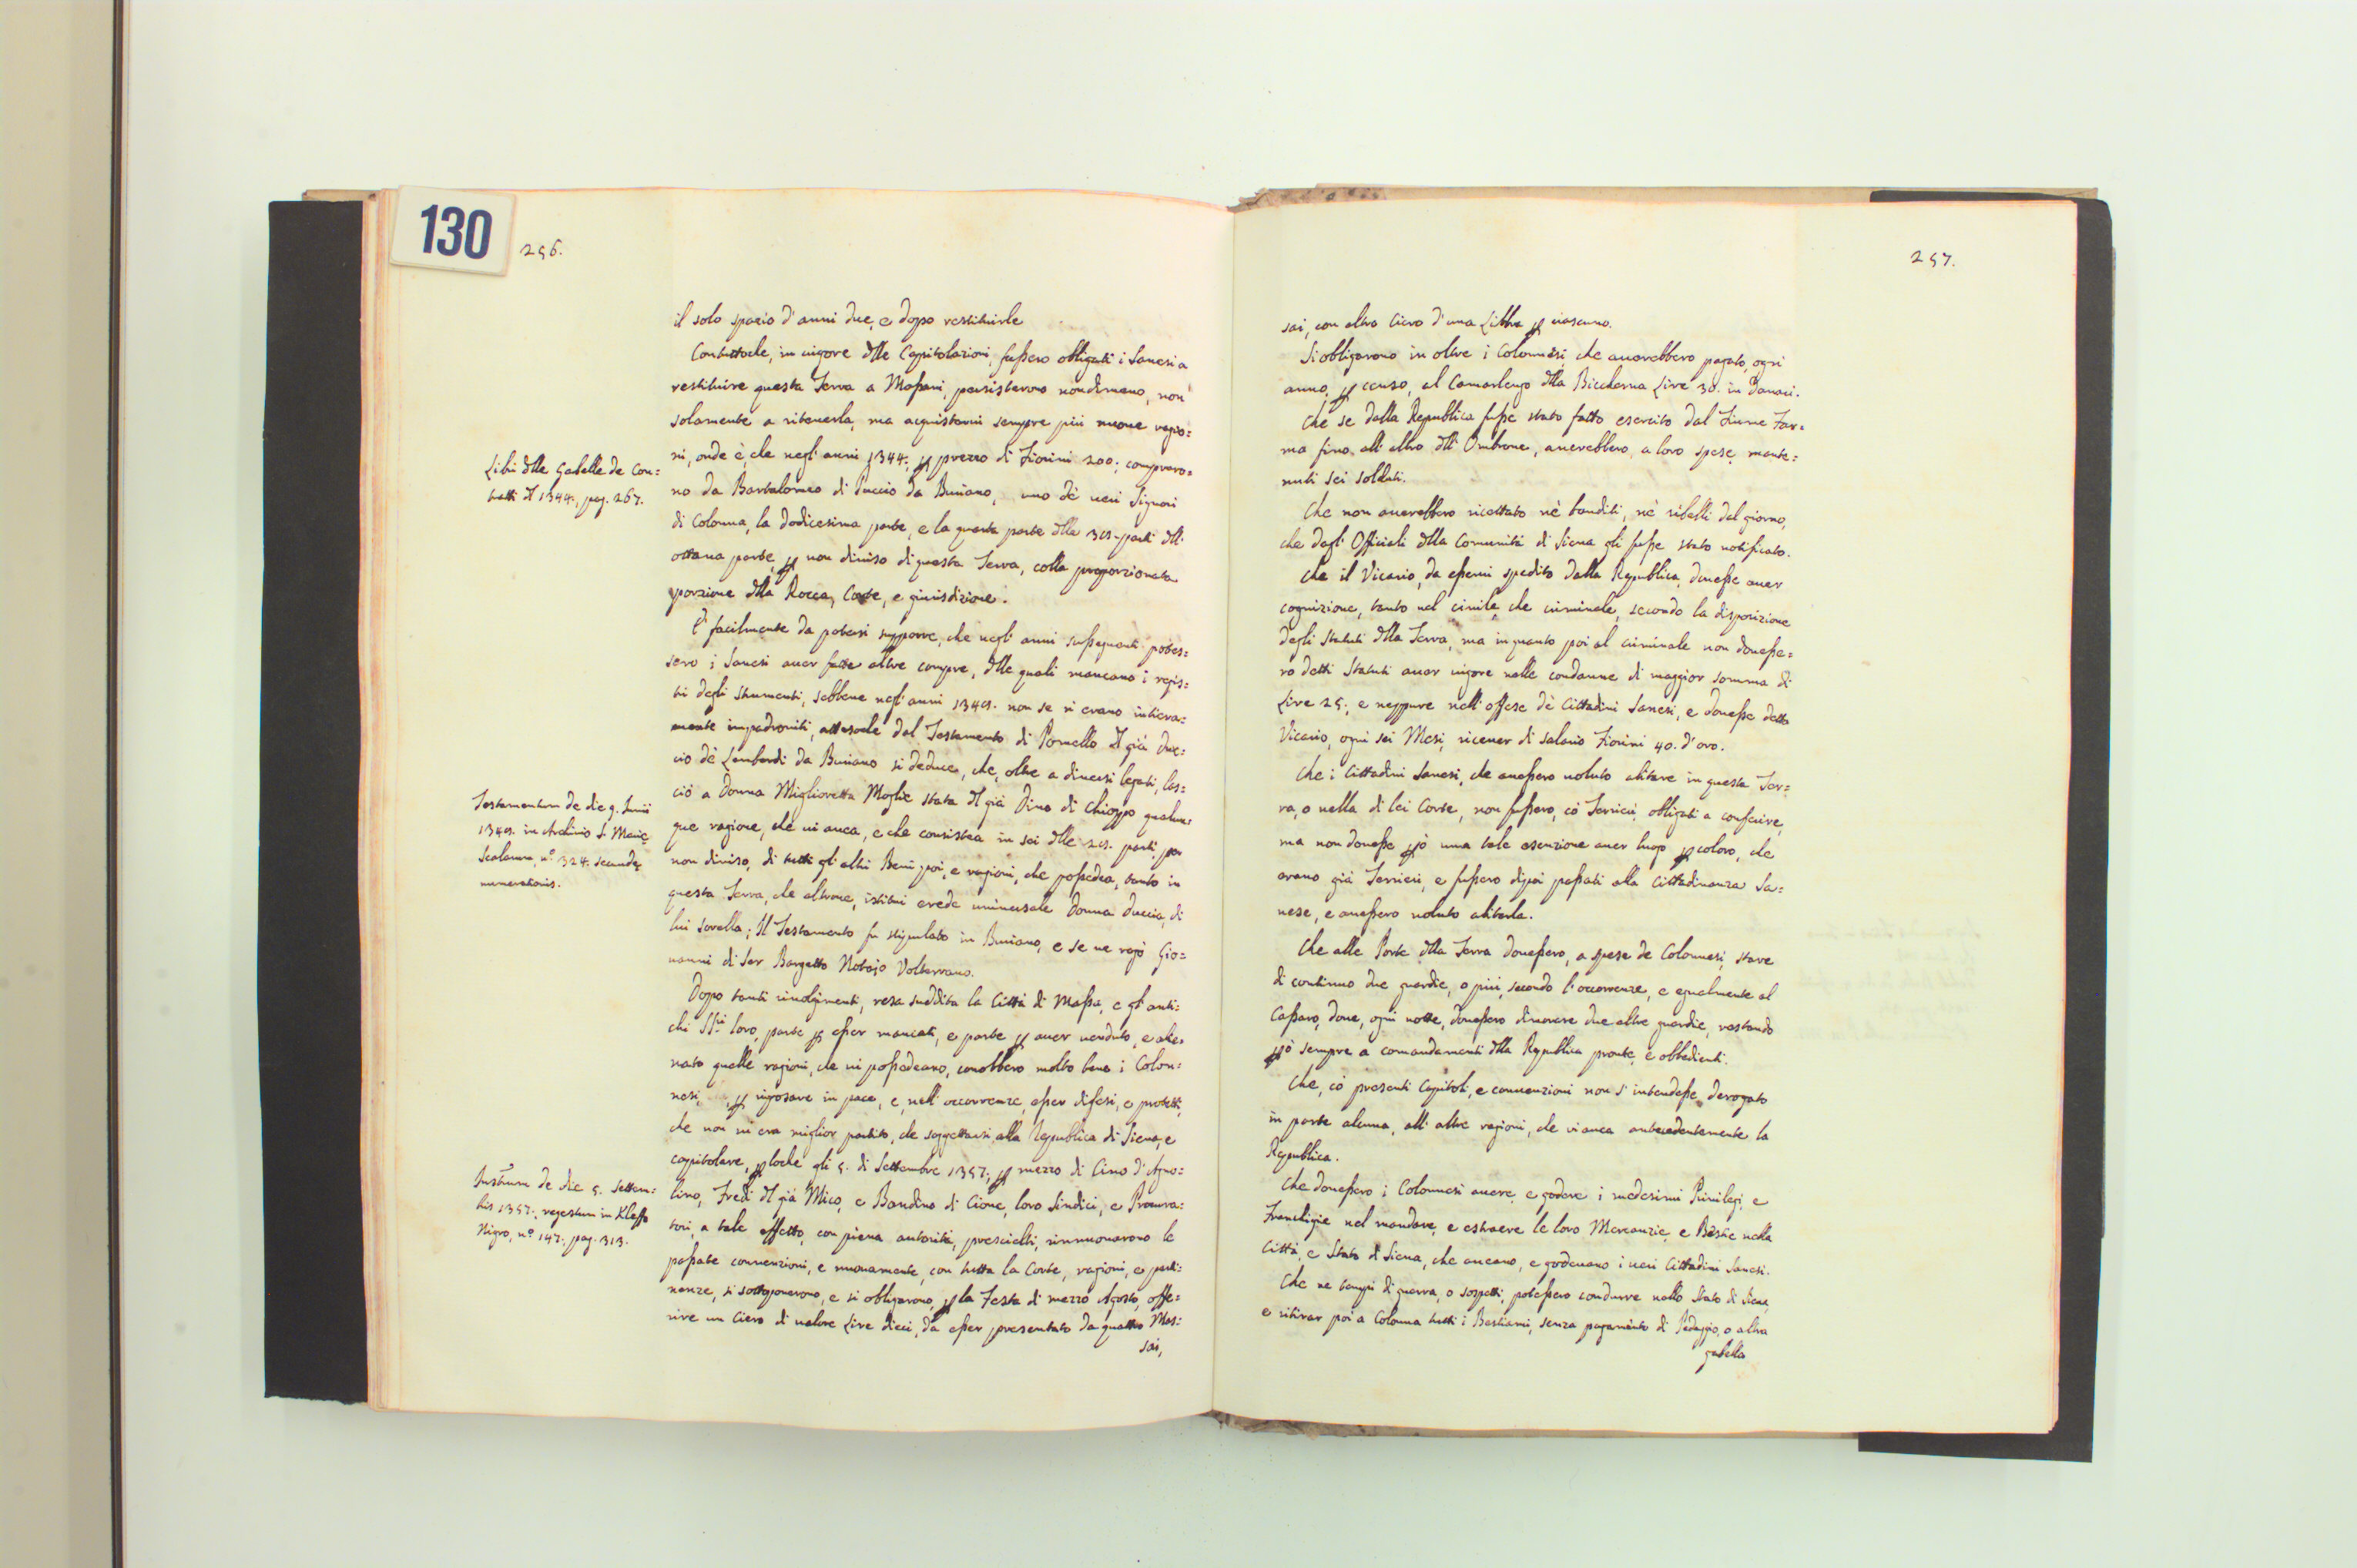 130
256.
il solo spazio d'anni due, e dopo restituirle
Contuttoche, in uigore dlle Capitolazioni, fussero obligati i Sanesi a
restituire questa Terra a Massani, persisterono nondimeno, non
solamente a ritenerla, ma acquistarui sempre più nuoue ragio=
ni, onde è, che negl'anni 1344. p prezzo di Fiorini 200; compraro=
no da Bartalomeo di Puccio da Buriano, uno dè ueri Signori
di Colonna, la dodicesima parte, e la quarta parte dlla parti dll'
ottaua parte, p non diuiso di questa Terra, colla proporzionata
porzione dlla Rocca, Corte, e giurisdizione.
Libri dlle Gabelle de Con=
tratti dl 1344., pag. 267.
È facilmente da potersi supporre, che negl'anni susseguenti potes=
sero i Sanesi auer fatte altre compre, dlle quali mancano i regis=
tri degli strumenti, sebbene negl'anni 1349. non se n'erano intiera=
mente impadroniti, attesoche dal Testamento di Pornello dl già Duc=
cio dè Lambardi da Buriano si deduce, che, oltre a diuersi legati, las=
ciò a Donna Miglioretta Moglie stata dl già Dino di Chioppo qualun=
que ragione, che ui auea, e che consistea in sei dlle 25. parti per
non diuiso, di tutti gl'altri Beni poi, e ragioni, che possedea, tanto in
questa Terra, che altroue, istituì erede uniuersale Donna Duccia, di
lui sorella; Il Testamento fu stipulato in Buriano, e se ne rogò Gio=
uanni di Ser Bargetto Notajo Volterrano.
Testamentum de die 9. Junii
1349. in Archiuio S. Mariæ
Scalarum, n.º 324. secundæ
numerationis.
Dopo tanti riuolgimenti, resa suddita la Città di Massa, e gl'anti=
chi SS.ri loro, parte p esser mancati, e parte p auer uenduto, e alie=
nato quelle ragioni, che ui possedeano, conobbero molto bene i Colon=
nesi, p riposare in pace, e, nell'occorrenze, esser difesi, e protetti,
che non ui era miglior partito, che soggettarsi alla Republica di Siena, e
capitolare, ploche gli 5. di Settembre 1357; p mezzo di Cino d'Agno=
lino, Fredi dl già Mico, e Bandino di Cione, loro Sindici, e Procura=
tori, a tale effetto, con piena autorità, prescielti, rinnuouarono le
passate conuenzioni, e nuouamente, con tutta la Corte, ragioni, e perti=
nenze, si sottoponerono, e si obligarono, p la Festa di mezzo Agosto, offe=
rire un Ciero di ualore Lire dieci, da esser presentato da quattro Mas=
sai,
Instrum de die 5. Settem=
bis 1357., registum in Kleffo
Nigro, n.º 147., pag. 313.
257.
sai, con altro Ciero d'una Libbra p ciascuno.
Si obligarono in oltre i Colonnesi che auerebbero pagato, ogni
anno, p censo, al Camarlengo dlla Biccherna Lire 30. in Danari.
Che se dalla Republica fusse stato fatto esercito dal Fiume Far=
ma fino all'altro dll'Ombrone, auerebbero, a loro spese, mante=
nuti sei soldati.
Che non auerebbero ricettato nè banditi, nè ribelli dal giorno,
che dagl'Officiali dlla Comunità di Siena gli fusse stato notificato.
Che il Vicario, da esserui spedito dalla Republica, douesse auer
cognizione, tanto nel ciuile, che criminale, secondo la disposizione
degli Statuti dlla Terra, ma in quanto poi al criminale non douesse=
ro detti Statuti auer uigore nelle condanne di maggior somma di
Lire 25., e neppure nell'offese dè Cittadini Sanesi, e douesse detto
Vicario, ogni sei Mesi, riceuer di salario Fiorini 40. d'oro.
Che i Cittadini Sanesi, che auessero uoluto abitare in questa Ter=
ra, o nella di lei Corte, non fussero, cò Terrieri, obligati a conferire,
ma non douesse pò una tale esenzione auer luogo p coloro, che
erano già Terrieri, e fussero dipoi passati alla Cittadinanza Sa=
nese, e auessero uoluto abitarla.
Che alle Porte dlla Terra douessero, a spese de Colonnesi, stare
di continuo due guardie, o più, secondo l'occorrenze, e egualmente al
Cassaro, doue, ogni notte, douessero dimorare due altre guardie, restando
pò sempre a comandamenti dlla Republica pronte, e obbedienti.
Che, cò presenti Capitoli, e conuenzioni non s'intendesse derogato
in parte alcuna, all'altre ragioni, che ui auea antecedentemente la
Republica.
Che douessero i Colonnesi auere, e godere i medesimi Priuilegi, e
Franchigie nel mandare, e estraere le loro Mercanzie, e Bestie nella
Città, e Stato di Siena, che aueano, e godeuano i ueri Cittadini Sanesi.
Che ne tempi di guerra, o sospetti, potessero condurre nello Stato di Siena,
e ritirar poi a Colonna tutti i Bestiami, senza pagamento di Pedaggio, o altra
gabella